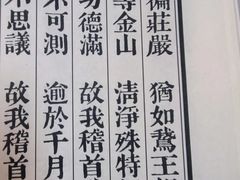 徧莊嚴　猶如鵞王
等金山　清淨殊特
功德滿　故我稽首
不可測　逾於千月
不思議　故我稽首